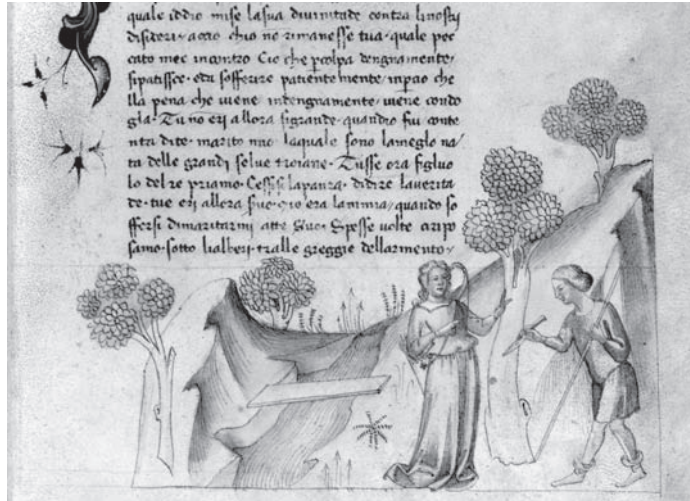 quale iddio mise lasua diuinitade contra linostri
disideri · accio chio no rimanesse tua · quale pec
cato mee incontro Cio che ꝑcolpa dengnamente ·
sipatiscce · eda sofferire patientemente · inꝑcio che
lla pena che uiene indengnamente · uiene condo
glia · Tu no eri allora sigrande · quandio fui conte
nta dite · marito mio laquale sono lameglo na
ta delle grandi selue troiane · Tusse ora figluo
lo del re priamo · Cessisi lapaura · didire lauerita
de · tue eri allora seruo · e io era lamnia / quando so
ffersi dimaritarmi atte seruo · Spesse uolte ci ripo
samo · sotto lialberi · tralle greggie dellarmento ·